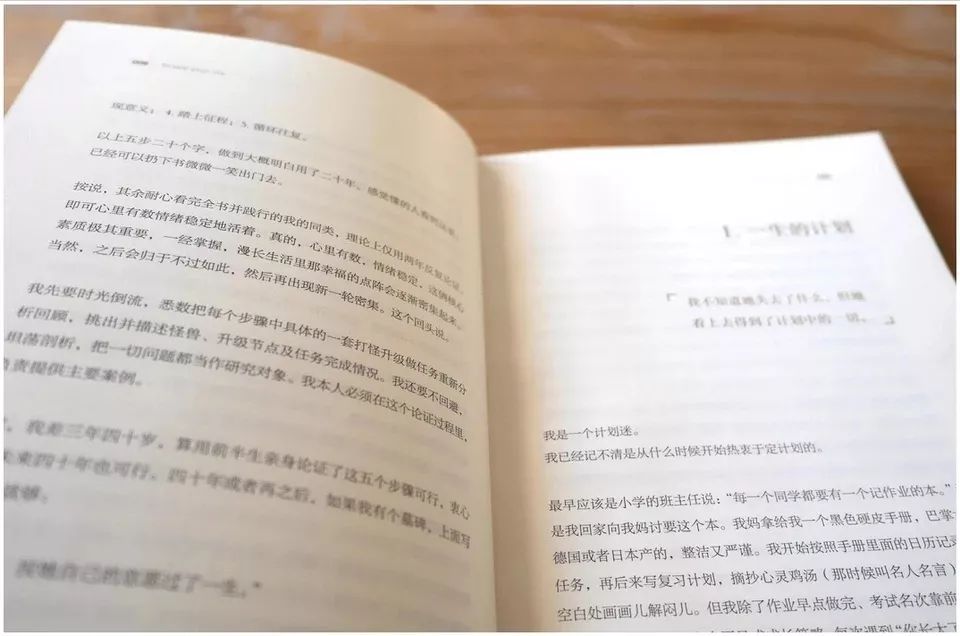 现意义；4. 踏上征程；5. 循环往复。
以上五步二十个字，做到大概明白用了二十年。感觉懂的人看到这里，
已经可以扔下书微微一笑出门去。
按说，其余耐心看完全书并践行的我的同类，理论上仅用两年反复论证，
即可心里有数情绪稳定地活着。真的，心里有数，情绪稳定，这俩核心
素质极其重要，一经掌握，漫长生活里那幸福的点阵会逐渐密集起来。
当然，之后会归于不过如此，然后再出现新一轮密集。这个回头说。
我先要时光倒流，悉数把每个步骤中具体的一套打怪升级做任务重新分
析回顾，挑出并描述怪兽、升级节点及任务完成情况。我还要不回避，
坦荡剖析，把一切问题都当作研究对象。我本人必须在这个论证过程里，
负责提供主要案例。
，我差三年四十岁，算用前半生亲身论证了这五个步骤可行，衷心
未来四十年也可行。四十年或者再之后，如果我有个墓碑，上面写
能够
按照自己的意愿过了一生。”
1. 一生的计划
「我不知道她失去了什么，但她
看上去得到了计划中的一切。」
我是一个计划迷。
我已经记不清是从什么时候开始热衷于定计划的。
最早应该是小学的班主任说：“每一个同学都要有一个记作业的本。”
是我回家向我妈讨要这个本。我妈拿给我一个黑色硬皮手册，巴掌
德国或者日本产的，整洁又严谨。我开始按照手册里面的日历记录
任务，再后来写复习计划，摘抄心灵鸡汤（那时候叫名人名言）
空白处画画儿解闷儿。但我除了作业早点做完、考试名次靠前
成长策略，每次遇到“你长大了